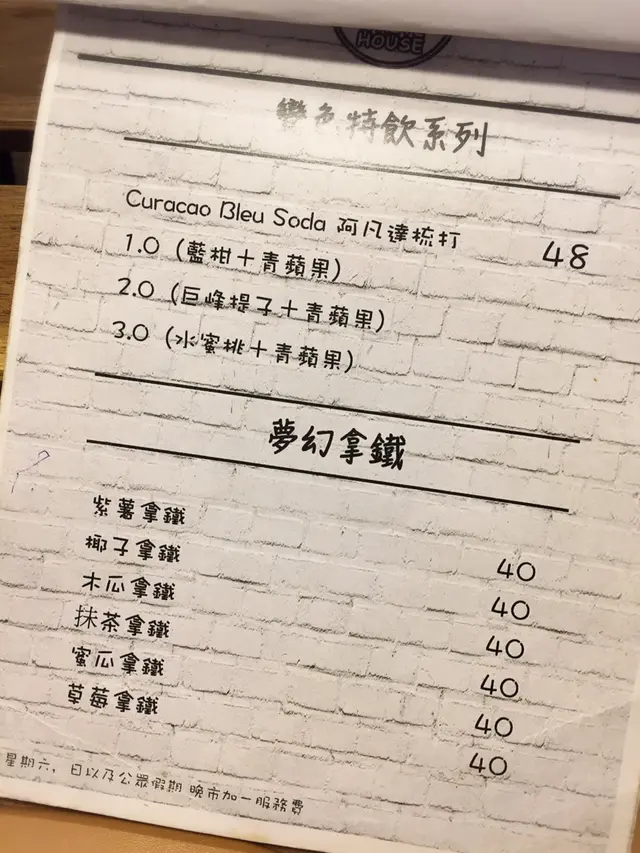 HOUSE
變色特飲系列
Curacao Bleu Soda 阿凡達梳打 48
1.0 (藍柑+青蘋果)
2.0 (巨峰提子+青蘋果)
3.0 (水蜜桃+青蘋果)
夢幻拿鐵
紫薯拿鐵 40
椰子拿鐵 40
木瓜拿鐵 40
抹茶拿鐵 40
蜜瓜拿鐵 40
草莓拿鐵 40
星期六，日以及公眾假期 晚市加一服務費